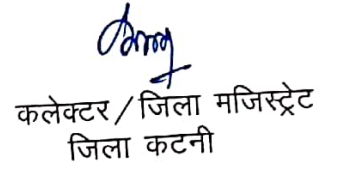 कलेक्टर / जिला मजिस्ट्रेट
जिला कटनी